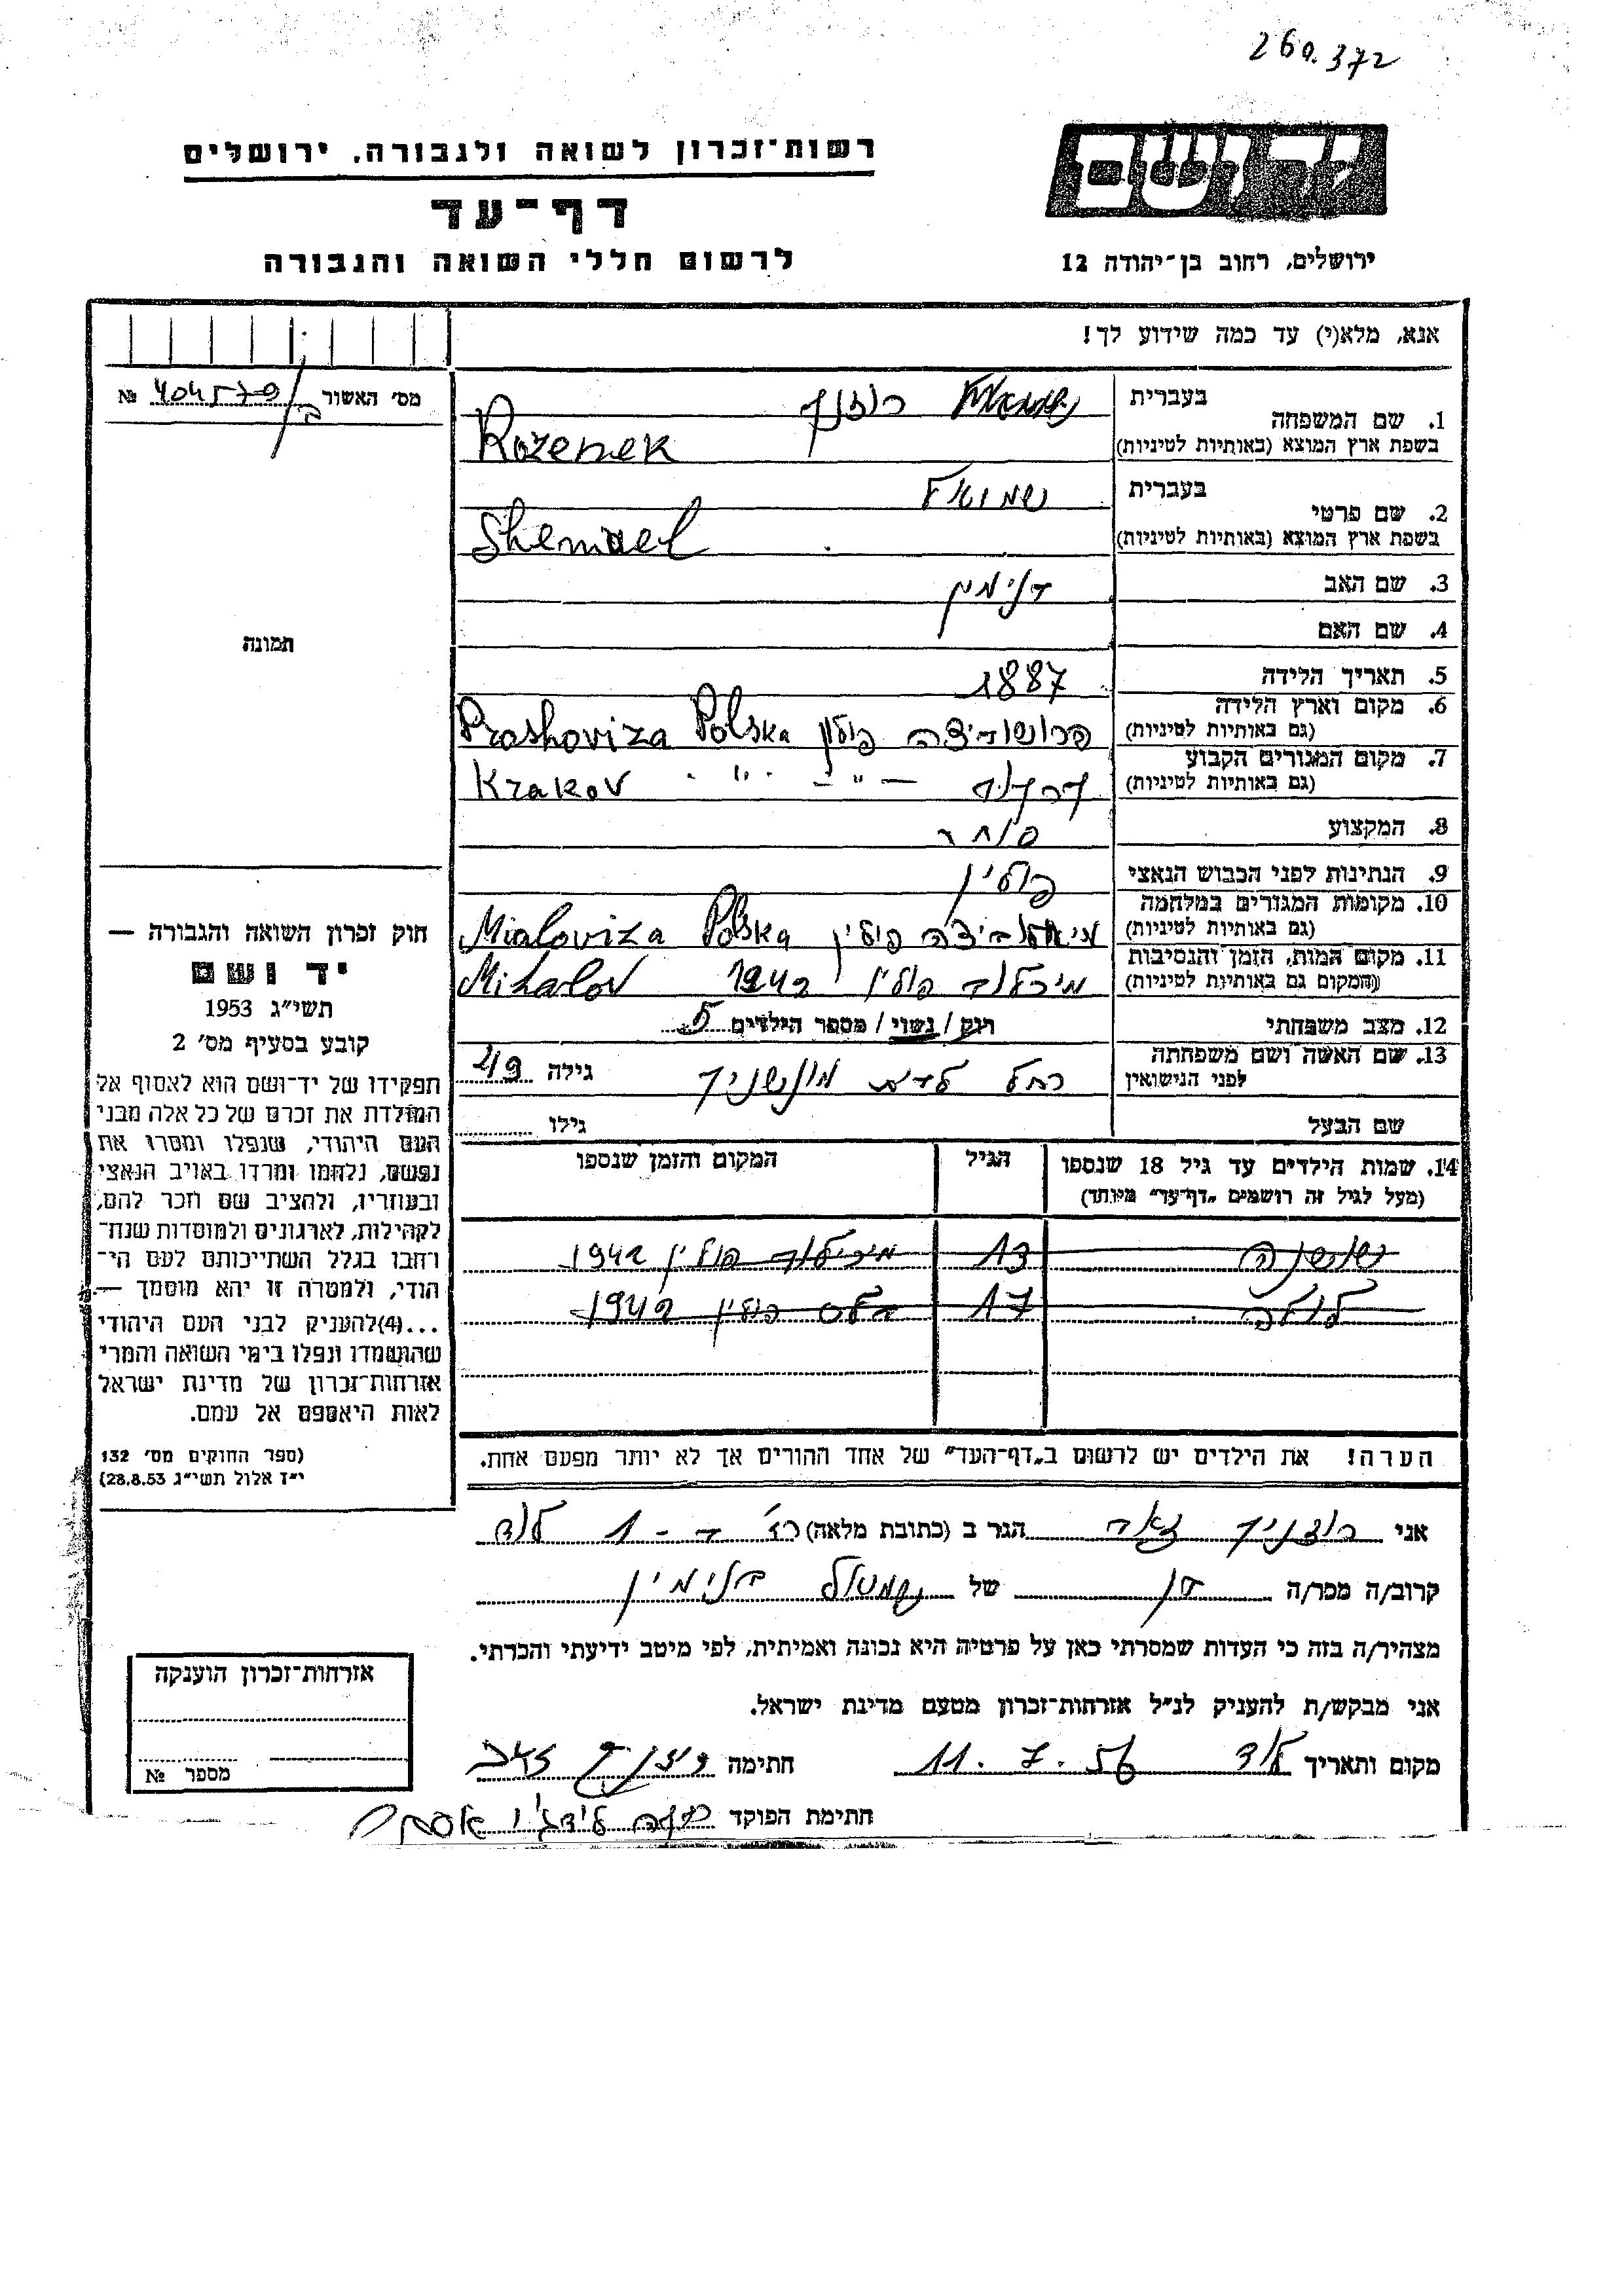 260.372
יד ושם
רשות־זכרון לשואה ולגבורה, ירושלים
דף־עד
לרשום חללי השואה והגבורה
ירושלים, רחוב בן־יהודה 12
אנא, מלא(י) עד כמה שידוע לך!
מס׳ האשור № 404579
1. שם המשפחה
בעברית
בשפת ארץ המוצא (באותיות לטיניות) Rozenek
2. שם פרטי
בעברית שמואל
בשפת ארץ המוצא (באותיות לטיניות) Shemuel
3. שם האב בנימין
4. שם האם
5. תאריך הלידה 1887
6. מקום וארץ הלידה
(גם באותיות לטיניות) פרושוביצה פולין Proshoviza Polska
7. מקום המגורים הקבוע
(גם באותיות לטיניות) קרקוב — " — " Krakov
8. המקצוע סוחר
9. הנתינות לפני הכבוש הנאצי פולין
10. מקומות המגורים במלחמה
(גם באותיות לטיניות) פולין Mialoviza Polska
11. מקום המות, הזמן והנסיבות
(המקום גם באותיות לטיניות) מיכלוב פולין 1942 Mihalov
12. מצב משפחתי רוק / נשוי / מספר הילדים 5
13. שם האשה ושם משפחתה
לפני הנשואין רחל לבית גילה 49
שם הבעל גילו
14. שמות הילדים עד גיל 18 שנספו
(מעל לגיל זה רושמים „דף־עד” מיוחד)
הגיל
המקום והזמן שנספו
שושנה 13 מיכלוב פולין 1942
17 פולין 1942
הערה! את הילדים יש לרשום ב„דף־העד” של אחד ההורים אך לא יותר מפעם אחת.
אני רוזניק זאב הגר ב (כתובת מלאה) 1 לוד
קרוב/ה מכר/ה בן של שמואל בנימין
מצהיר/ה בזה כי העדות שמסרתי כאן על פרטיה היא נכונה ואמיתית, לפי מיטב ידיעתי והכרתי.
אני מבקש/ת להעניק לנ״ל אזרחות־זכרון מטעם מדינת ישראל.
מקום ותאריך לוד 11.7.56 חתימה זאב
חתימת הפוקד
תמונה
חוק זכרון השואה והגבורה —
יד ושם
תשי״ג 1953
קובע בסעיף מס׳ 2
תפקידו של יד־ושם הוא לאסוף אל
המולדת את זכרם של כל אלה מבני
העם היהודי, שנפלו ומסרו את
נפשם, נלחמו ומרדו באויב הנאצי
ובעוזריו, ולהציב שם וזכר להם,
לקהילות, לארגונים ולמוסדות שנח־
רחבו בגלל השתייכותם לעם הי־
הודי, ולמטרה זו יהא מוסמך —
...(4)להעניק לבני העם היהודי
שהושמדו ונפלו בימי השואה והמרי
אזרחות־זכרון של מדינת ישראל
לאות היאספם אל עמם.
(ספר החוקים מס׳ 132
י״ז אלול תשי״ג 28.8.53)
אזרחות־זכרון הוענקה
מספר №